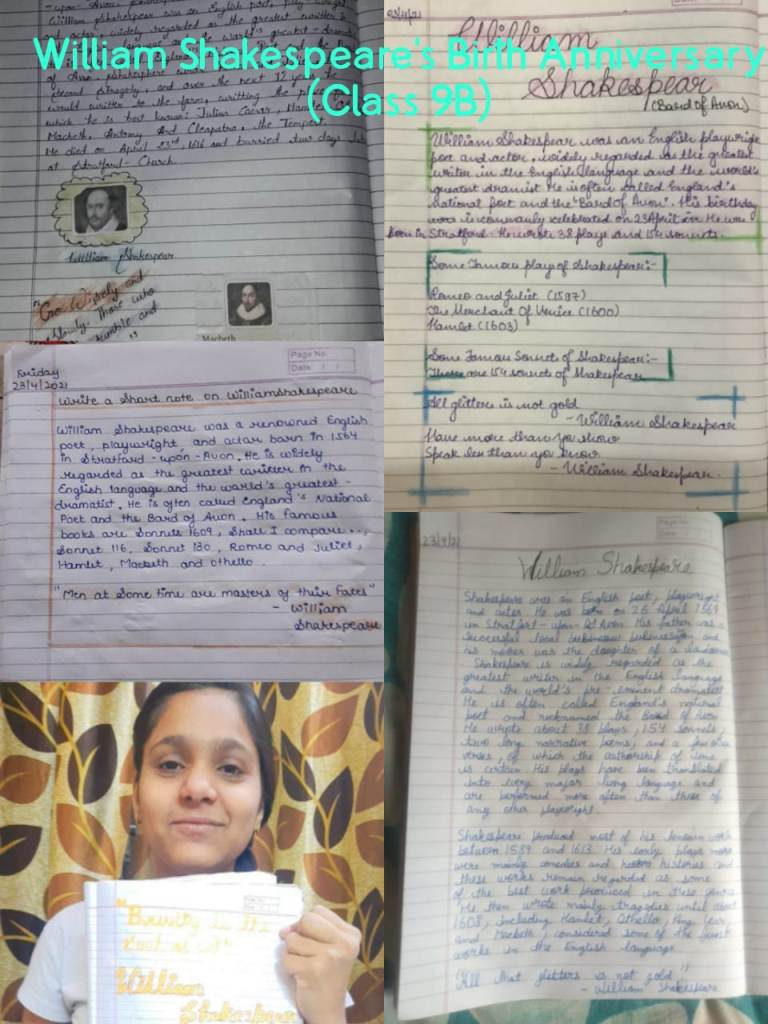 William Shakespeare's Birth Anniversary
(Class 9B)
would written to the form, writting the
which he is best known: Julius Caesar,
Macbeth, Antony And Cleopatra, the Tempest.
He died on April 23rd, 1616 and burried two days
at Stratford - Church.
William Shakespear
"Go Wisely and
slowly. Those who
Macbeth
William
Shakespear
(Bard of Avon)
William Shakespear was an English playwrige
poet and actor, widely regarded as the greatest
writer in the English language and the world's
greatest dramist He is often called England's
national poet and the "Bard of Avon". His birthday
was is commonly celebrated on 23 April in He was
Born in Stratford. He wrote 38 plays and 154 sonnets.
Some Famous plays of Shakespear:-
Romeo and Juliet (1597)
The Merchant of Venice (1600)
Hamlet (1603)
Some Famous Sonnets of Shakespear:-
There are 154 sonnets of Shakespeare
All glitters is not gold
- William Shakespear
Have more than you show
Speak less than you know
- William Shakespear.
Friday
23/4/2021
Page No.
Date
Write a Short note on William Shakespeare
William Shakespeare was a renowned English
poet, playwright, and actor born in 1564
in Stratford - upon - Avon. He is widely
regarded as the greatest writer in the
English language and the world's greatest -
dramatist. He is often called England's National
Poet and the Bard of Avon. His famous
books are Sonnets 1609, Shall I compare...,
Sonnet 116, Sonnet 130, Romeo and Juliet,
Hamlet, Macbeth and Othello.
"Men at Some time are masters of their Fates"
- William
Shakespeare
23/4/21
William Shakespeare
Shakespeare was an English poet, playwright
and actor. He was born on 26 April 1564
in Stratfort - upon - Avon. His father was a
successful local businessman and
his mother was the daughter of a landowner
Shakespeare is widely regarded as the
greatest writer in the English language
and the world's pre - eminent dramatist
He is often called England's national
poet and nicknamed the Bard of Avon
He wrote about 38 plays, 154 sonnets,
two long narrative poems, and a few other
verses, of which the authorship of some
is certain. His plays have been translated
into every major living language and
are performed more often than those of
any other playwright.
Shakespeare produced most of his known work
between 1589 and 1613. His early plays
were mainly comedies and histories and
these works remain regarded as some
of the best work produced in these genres
He then wrote mainly tragedies until about
1608, including Hamlet, Othello, King Lear,
and Macbeth, considered some of the finest
works in the English language
"All that glitters is not gold"
- William Shakespeare
"Brevity is the
Soul of wit"
William
Shakespeare